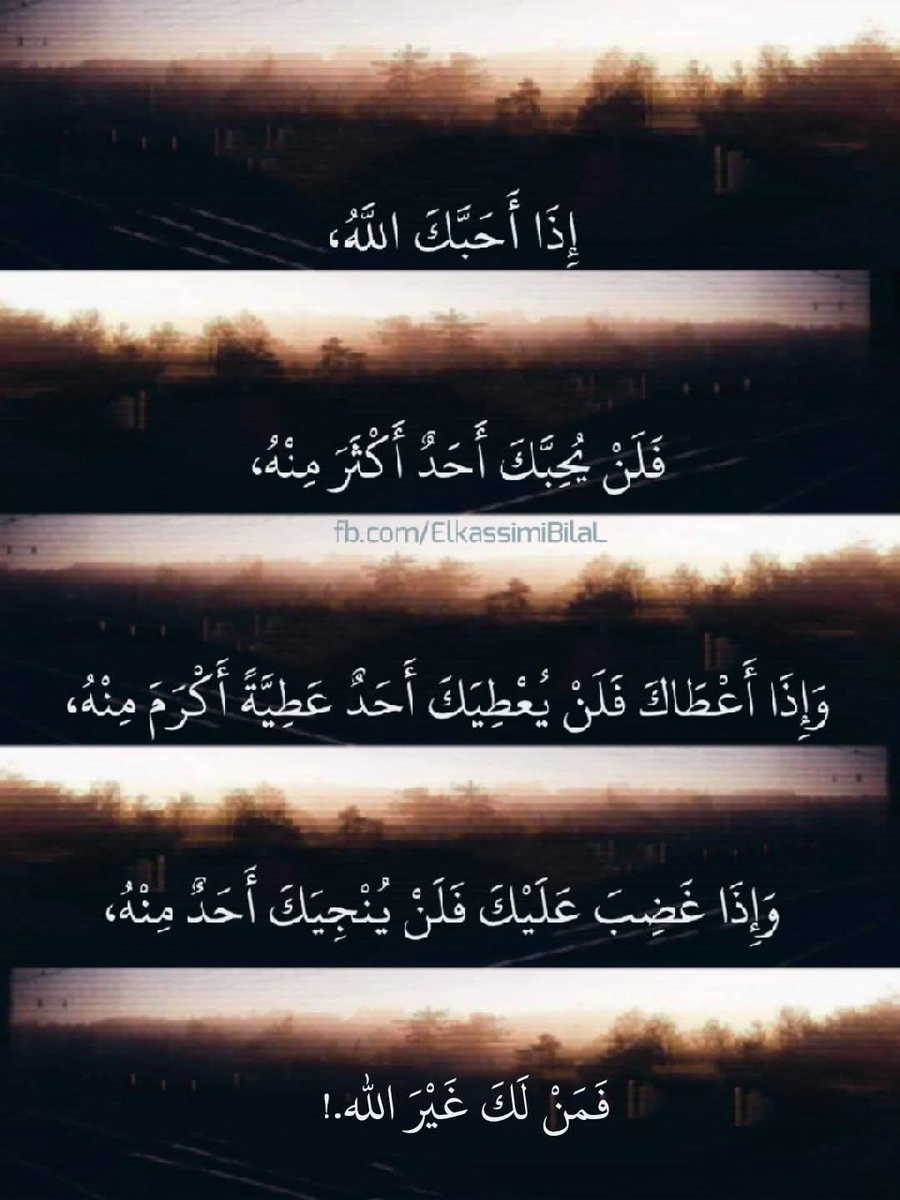 إِذَا أَحَبَّكَ اللَّهُ،
فَلَنْ يُحِبَّكَ أَحَدٌ أَكْثَرَ مِنْهُ،
fb.com/ElkassimiBilaL
وَإِذَا أَعْطَاكَ فَلَنْ يُعْطِيَكَ أَحَدٌ عَطِيَّةً أَكْرَمَ مِنْهُ،
وَإِذَا غَضِبَ عَلَيْكَ فَلَنْ يُنْجِيَكَ أَحَدٌ مِنْهُ،
فَمَنْ لَكَ غَيْرَ الله.!